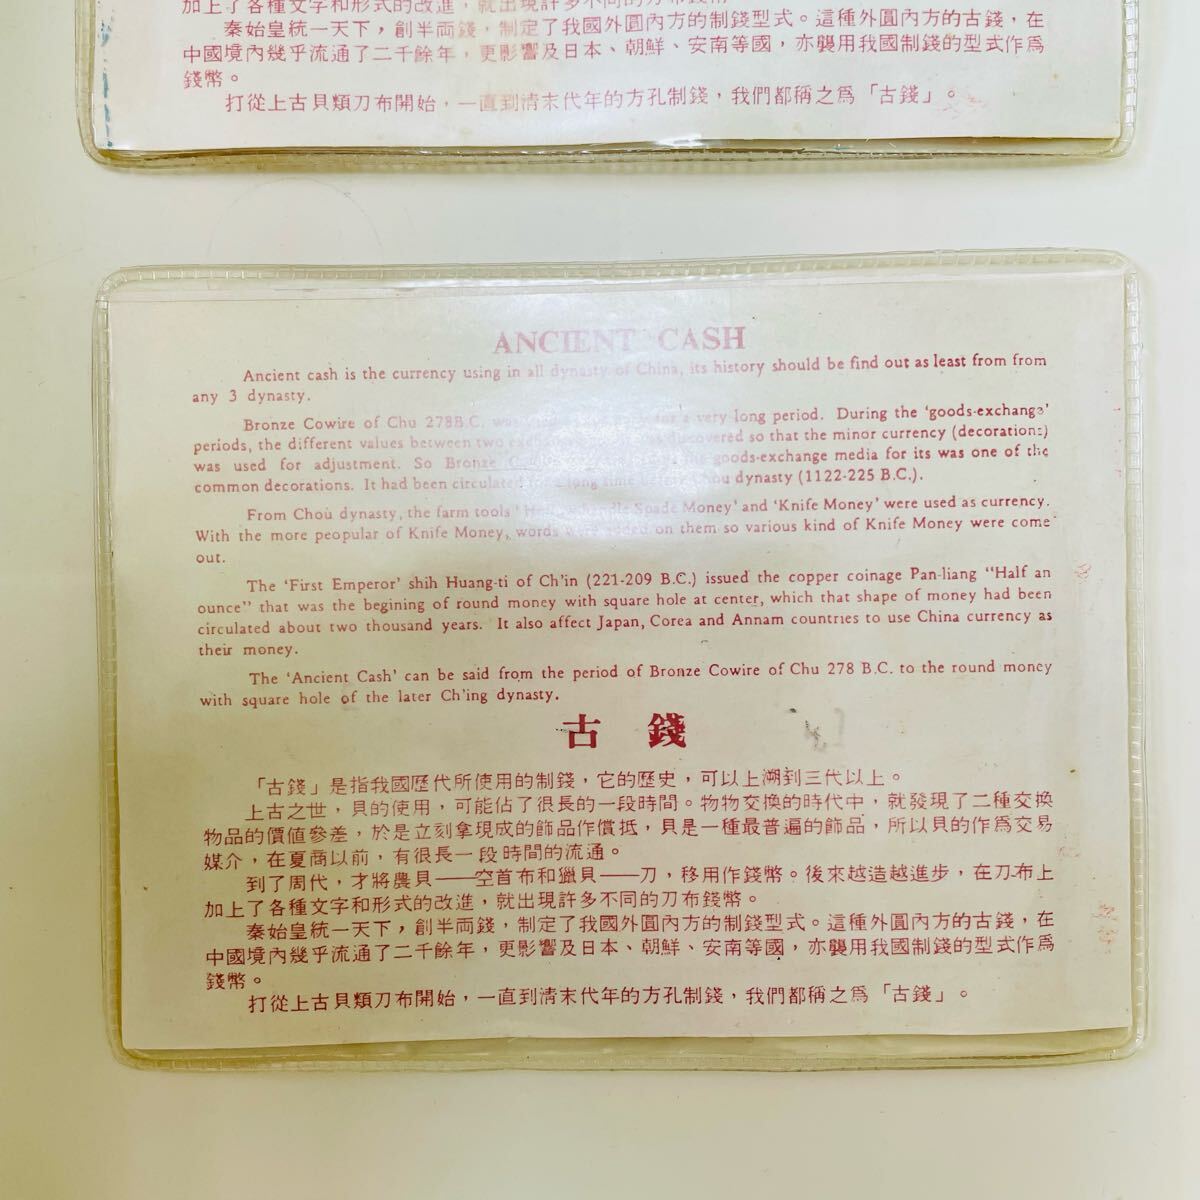 加上了各種文字和形式的改進，就出現許多不同的刀布錢幣。
秦始皇統一天下，創半両錢，制定了我國外圓內方的制錢型式。這種外圓內方的古錢，在
中國境內幾乎流通了二千餘年，更影響及日本、朝鮮、安南等國，亦襲用我國制錢的型式作爲
錢幣。
打從上古貝類刀布開始，一直到淸末代年的方孔制錢，我們都稱之爲「古錢」。
ANCIENT CASH
Ancient cash is the currency using in all dynasty of China, its history should be find out as least from from
any 3 dynasty.
Bronze Cowire of Chu 278B.C. was for a very long period. During the 'goods-exchange'
periods, the different values between two was discovered so that the minor currency (decorations)
was used for adjustment. So Bronze the goods-exchange media for its was one of the
common decorations. It had been circulated for a long time before Chou dynasty (1122-225 B.C.).
From Chou dynasty, the farm tools 'Hollow-handle Spade Money' and 'Knife Money' were used as currency.
With the more peopular of Knife Money, words were added on them so various kind of Knife Money were come
out.
The 'First Emperor' shih Huang-ti of Ch'in (221-209 B.C.) issued the copper coinage Pan-liang "Half an
ounce" that was the begining of round money with square hole at center, which that shape of money had been
circulated about two thousand years. It also affect Japan, Corea and Annam countries to use China currency as
their money.
The 'Ancient Cash' can be said from the period of Bronze Cowire of Chu 278 B.C. to the round money
with square hole of the later Ch'ing dynasty.
古 錢
「古錢」是指我國歷代所使用的制錢，它的歷史，可以上溯到三代以上。
上古之世，貝的使用，可能佔了很長的一段時間。物物交換的時代中，就發現了二種交換
物品的價值參差，於是立刻拿現成的飾品作償抵，貝是一種最普遍的飾品，所以貝的作爲交易
媒介，在夏商以前，有很長一段時間的流通。
到了周代，才將農貝——空首布和獵貝——刀，移用作錢幣。後來越造越進步，在刀布上
加上了各種文字和形式的改進，就出現許多不同的刀布錢幣。
秦始皇統一天下，創半両錢，制定了我國外圓內方的制錢型式。這種外圓內方的古錢，在
中國境內幾乎流通了二千餘年，更影響及日本、朝鮮、安南等國，亦襲用我國制錢的型式作爲
錢幣。
打從上古貝類刀布開始，一直到淸末代年的方孔制錢，我們都稱之爲「古錢」。